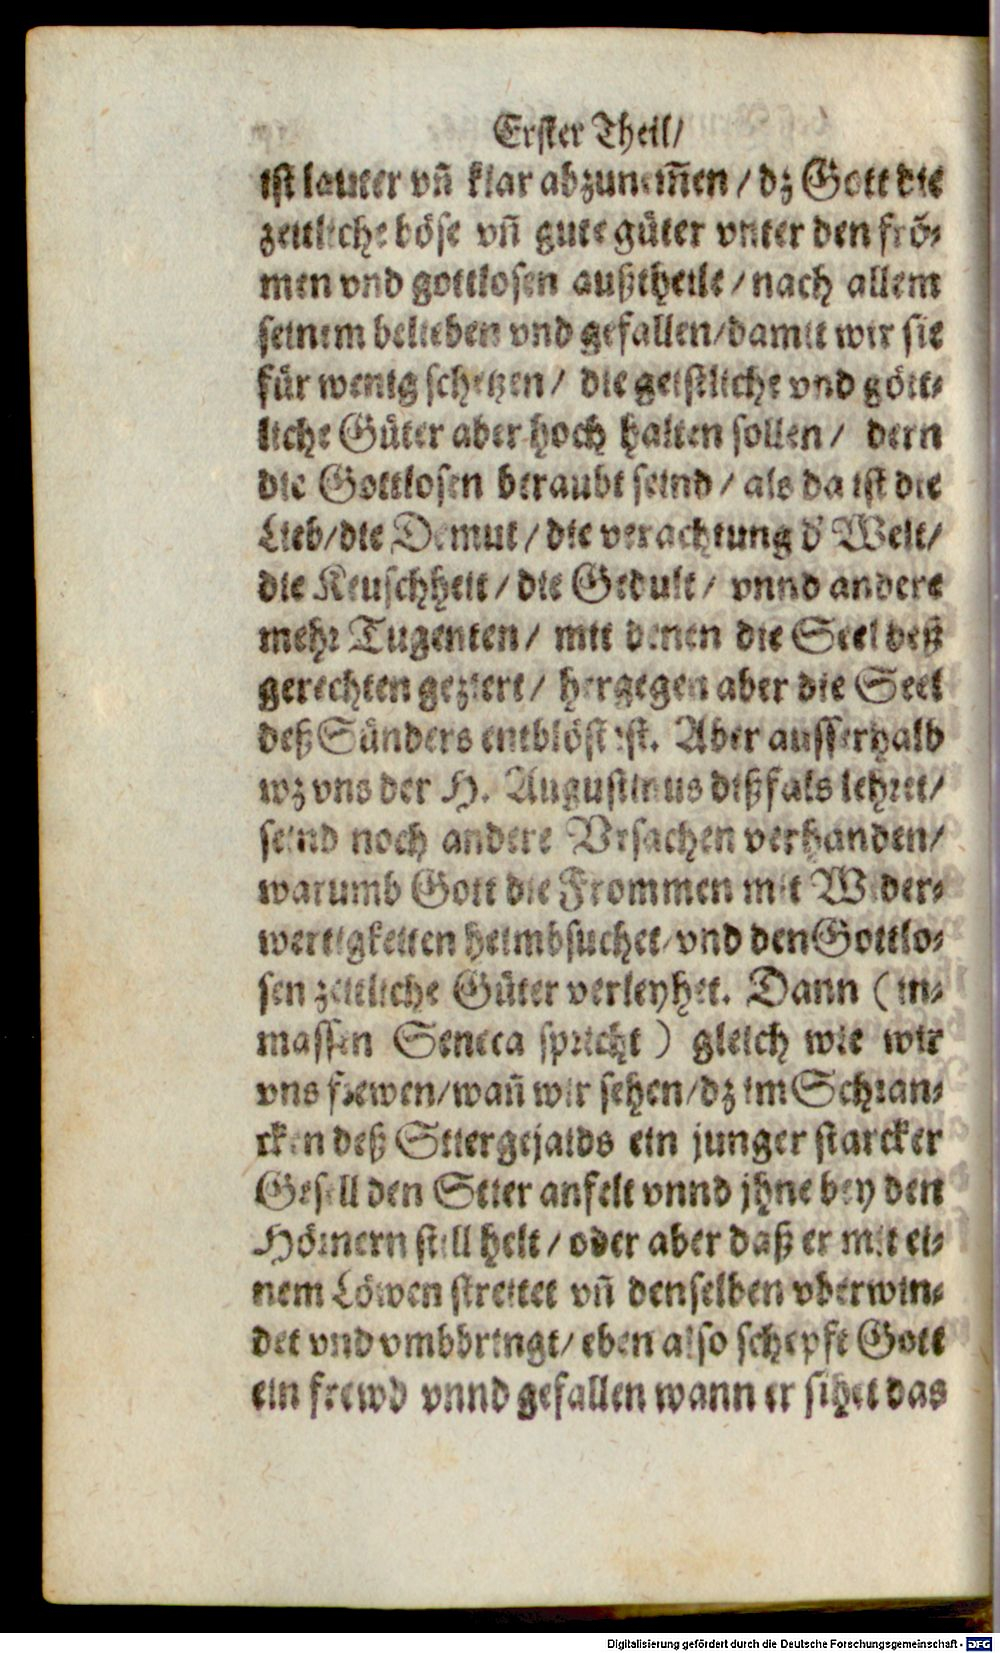 Erster Theil/
ist lauter vñ klar abzunem̃en / dz Gott die
zeitliche böse vñ gute güter vnter den frõ-
men vnd gottlosen außtheile / nach allem
seinem belieben vnd gefallen/damit wir sie
für wenig schetzen / die geistliche vnd gött-
liche Güter aber hoch halten sollen / dern
die Gottlosen beraubt seind / als da ist die
Lieb/die Demut / die verachtung d' Welt/
die Keuschheit / die Gedult / vnnd andere
mehr Tugenten / mit denen die Seel deß
gerechten geziert / hergegen aber die Seel
deß Sünders entblöst ist. Aber ausserhalb
wz vns der H. Augustinus dißfals lehret/
seind noch andere Vrsachen verhanden/
warumb Gott die Frommen mit Wider-
wertigkeiten heimbsuchet/vnd den Gottlo-
sen zeitliche Güter verleyhet. Dann (in-
massen Seneca spricht) gleich wie wir
vns frewen/wañ wir sehen/dz im Schran-
cken deß Stiergejaids ein junger starcker
Gesell den Stier anfelt vnnd jhne bey den
Hörnern still helt / oder aber daß er mit ei-
nem Löwen streitet vñ denselben vberwin-
det vnd vmbbringt/ eben also schepft Gott
ein frewd vnnd gefallen wann er sihet das
Digitalisierung gefördert durch die Deutsche Forschungsgemeinschaft - DFG